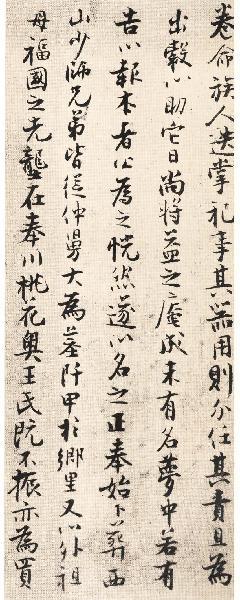 命族人迭掌祀事其器用則分任其責且為
出穀以助它日尚將益之庵成未有名夢中若有
告以報本者公為之恍然遂以名之正奉始卜葬西
山少師兄弟皆從仲舅大為墓阡甲於鄉里又以外祖
母福國之先壟在奉川桃花奧王氏既不振亦為買